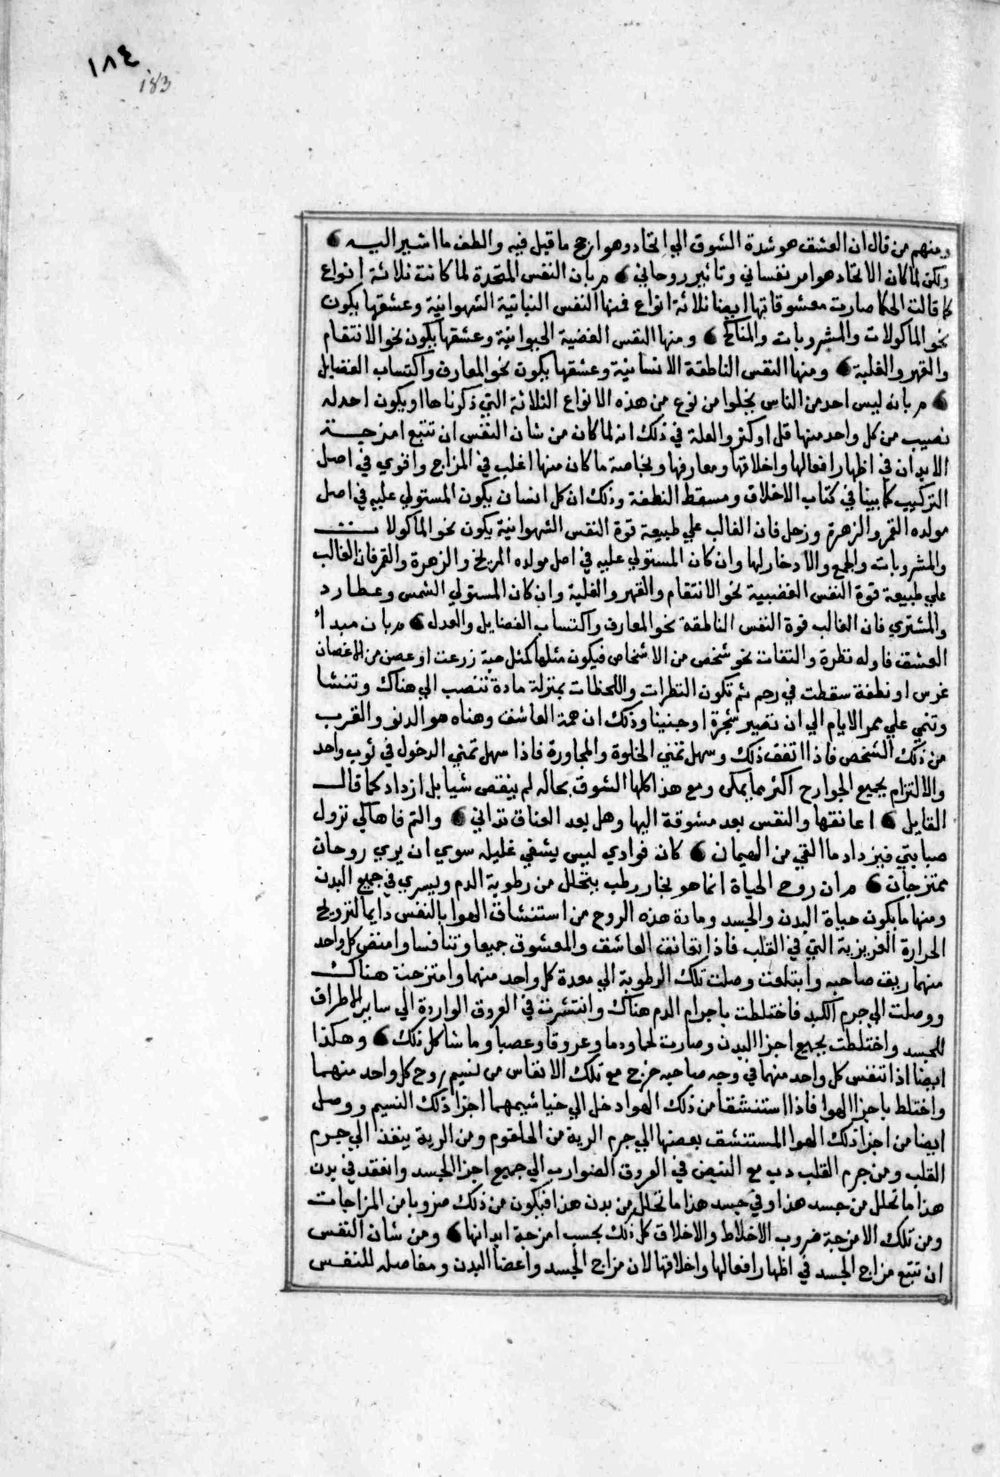 ١٨٤
183
ومنهم من قال ان العشق هو شدة الشوق الي الاتحاد وهو ارجح ما قيل فيه والطف ما اشير اليه ۞
ولكن لما كان الاتحاد هو امر نفساني وتاثير روحاني ۞ م ربان النفس المتحدة لما كانت ثلاثة انواع
كما قالت الحكما صارت معشوقاتها ايضا ثلاثة انواع فمنها النفس النباتية الشهوانية وعشقها يكون
نحو الماكولات والمشروبات والمناكح ۞ ومنها النفس الغضبية الحيوانية وعشقها يكون نحو الانتقام
والقهر والغلبة ۞ ومنها النفس الناطقة الانسانية وعشقها يكون نحو المعارف واكتساب الفضايل
۞ م ربان ليس احد من الناس يخلوا من نوع من هذه الانواع الثلاثة التي ذكرناها او يكون احد له
نصيب من كل واحد منها قل او كثر والعلة في ذلك انه لما كان من شان النفس ان تتبع امزجة
الابدان في اظهار افعالها واخلاقها ومعارفها وبخاصة ما كان منها اغلب في المزاج واقوي في اصل
التركيب كما بينا في كتاب الاخلاق ومسقط النطفة وذلك ان كل انسان يكون المستولي عليه في اصل
مولده القمر والزهرة وزحل فان الغالب علي طبيعة قوة النفس الشهوانية يكون نحو الماكولات
والمشروبات والجمع والادخار لها وان كان المستولي عليه في اصل مولده المريخ والزهرة والقمر فان الغالب
علي طبيعة قوة النفس الغضبية نحو الانتقام والقهر والغلبة وان كان المستولي الشمس وعطارد
والمشتري فان الغالب قوة النفس الناطقة نحو المعارف واكتساب الفضايل والعدل ۞ م ربان مبدأ
العشق فاوله نظرة والتفات نحو شخص من الاشخاص فيكون مثلها كمثل حبة زرعت او غصن من الاغصان
غرس او نطفة سقطت في رحم ثم تكون النظرات واللحظات بمنزلة مادة تنصب الي هناك وتنشا
وتنمي علي ممر الايام الي ان تصير شجرة او جنينا وذلك ان همة العاشق وهناه هو الدنو والقرب
من ذلك الشخص فاذا اتفق ذلك وسهل تمني الخلوة والمجاورة فاذا سهل تمني الدخول في ثوب واحد
والالتزام بجميع الجوارح اكثر ما يمكن ومع هذا كلها الشوق بحاله لم ينقص شيا بل ازداد كما قال
القايل ۞ اعانقها والنفس بعد مشوقة اليها وهل بعد العناق تداني ۞ والثم فاها كي تزول
صبابتي فيزداد ما القي من الهيمان ۞ كان فوادي ليس يشفي غليله سوي ان يري روحان
ممتزجان ۞ م ران روح الحياة انما هو بخار رطب يتحلل من رطوبة الدم ويسري في جميع البدن
ومنها ما يكون حياة البدن والجسد ومادة هذه الروح من استنشاق الهوا بالنفس دايما لترويح
الحرارة الغريزية التي في القلب فاذا تعانق العاشق والمعشوق جميعا وتنافسا وامتص كل واحد
منهما ريق صاحبه وابتلعت وصلت تلك الرطوبة الي معدة كل واحد منهما وامتزجت هناك
ووصلت الي جرم الكبد فاختلطت باجرام الدم هناك وانتشرت في العروق الواردة الي ساير الاطراف
للجسد واختلطت بجميع اجزا البدن وصارت لحما ودما وعروقا وعصبا وما شاكل ذلك ۞ وهكذا
ايضا اذا تنفس كل واحد منهما في وجه صاحبه خرج مع تلك الانفاس من نسيم روح كل واحد منهما
واختلط باجزا الهوا فاذا استنشقا من ذلك الهوا دخل الي خياشيمهما اجزا ذلك النسيم ووصل
ايضا من اجزا ذلك الهوا المستنشق بعضها الي جرم الرية من الحلقوم ومن الرية ينفذ الي جرم
القلب ومن جرم القلب دب مع النبض في العروق الضوارب الي جميع اجزا الجسد وانعقد في بدن
هذا ما تحلل من جسد هذا وفي جسد هذا ما تحلل من بدن هذا فيكون من ذلك ضروبا من المزاجات
ومن تلك الامزجة ضروب الاخلاط والاخلاق كل ذلك بحسب امزجة ابدانها ۞ ومن شان النفس
ان تتبع مزاج الجسد في اظهار افعالها واخلاقها لان مزاج الجسد واعضا البدن ومفاصله للنفس